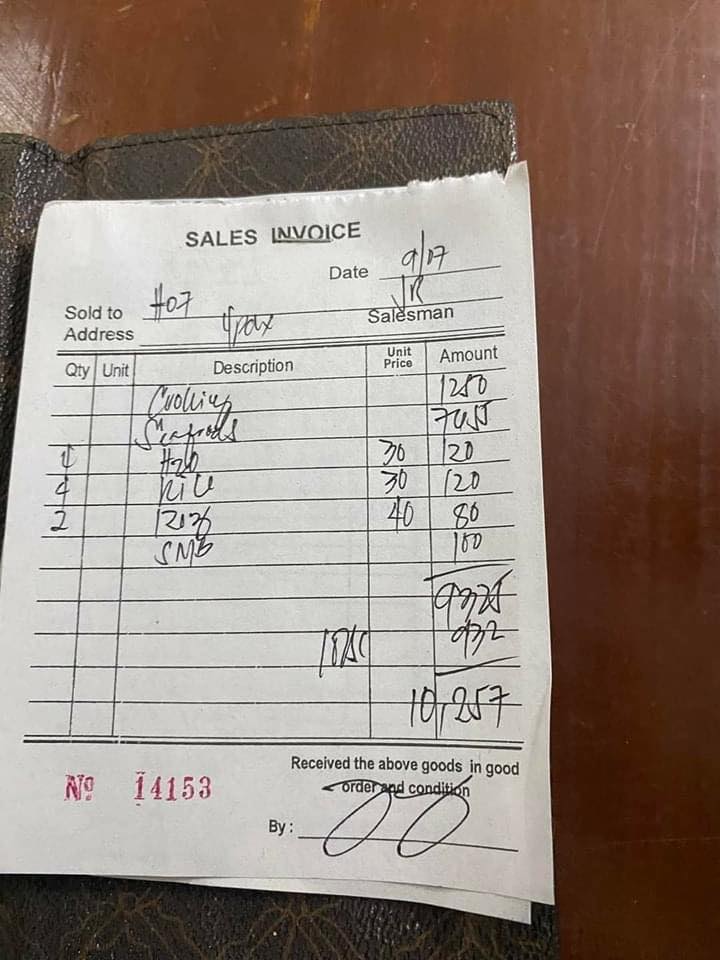 SALES INVOICE
Date 9/07
Sold to #07
JR
Address 4pax Salesman
Qty Unit Description Unit Price Amount
Cooking 1250
Seafoods 7655
4 H20 30 120
4 Rice 30 120
2 40 80
SMB 100
9325
10% SC 932
10,257
Received the above goods in good
order and condition
Nº 14153
By :